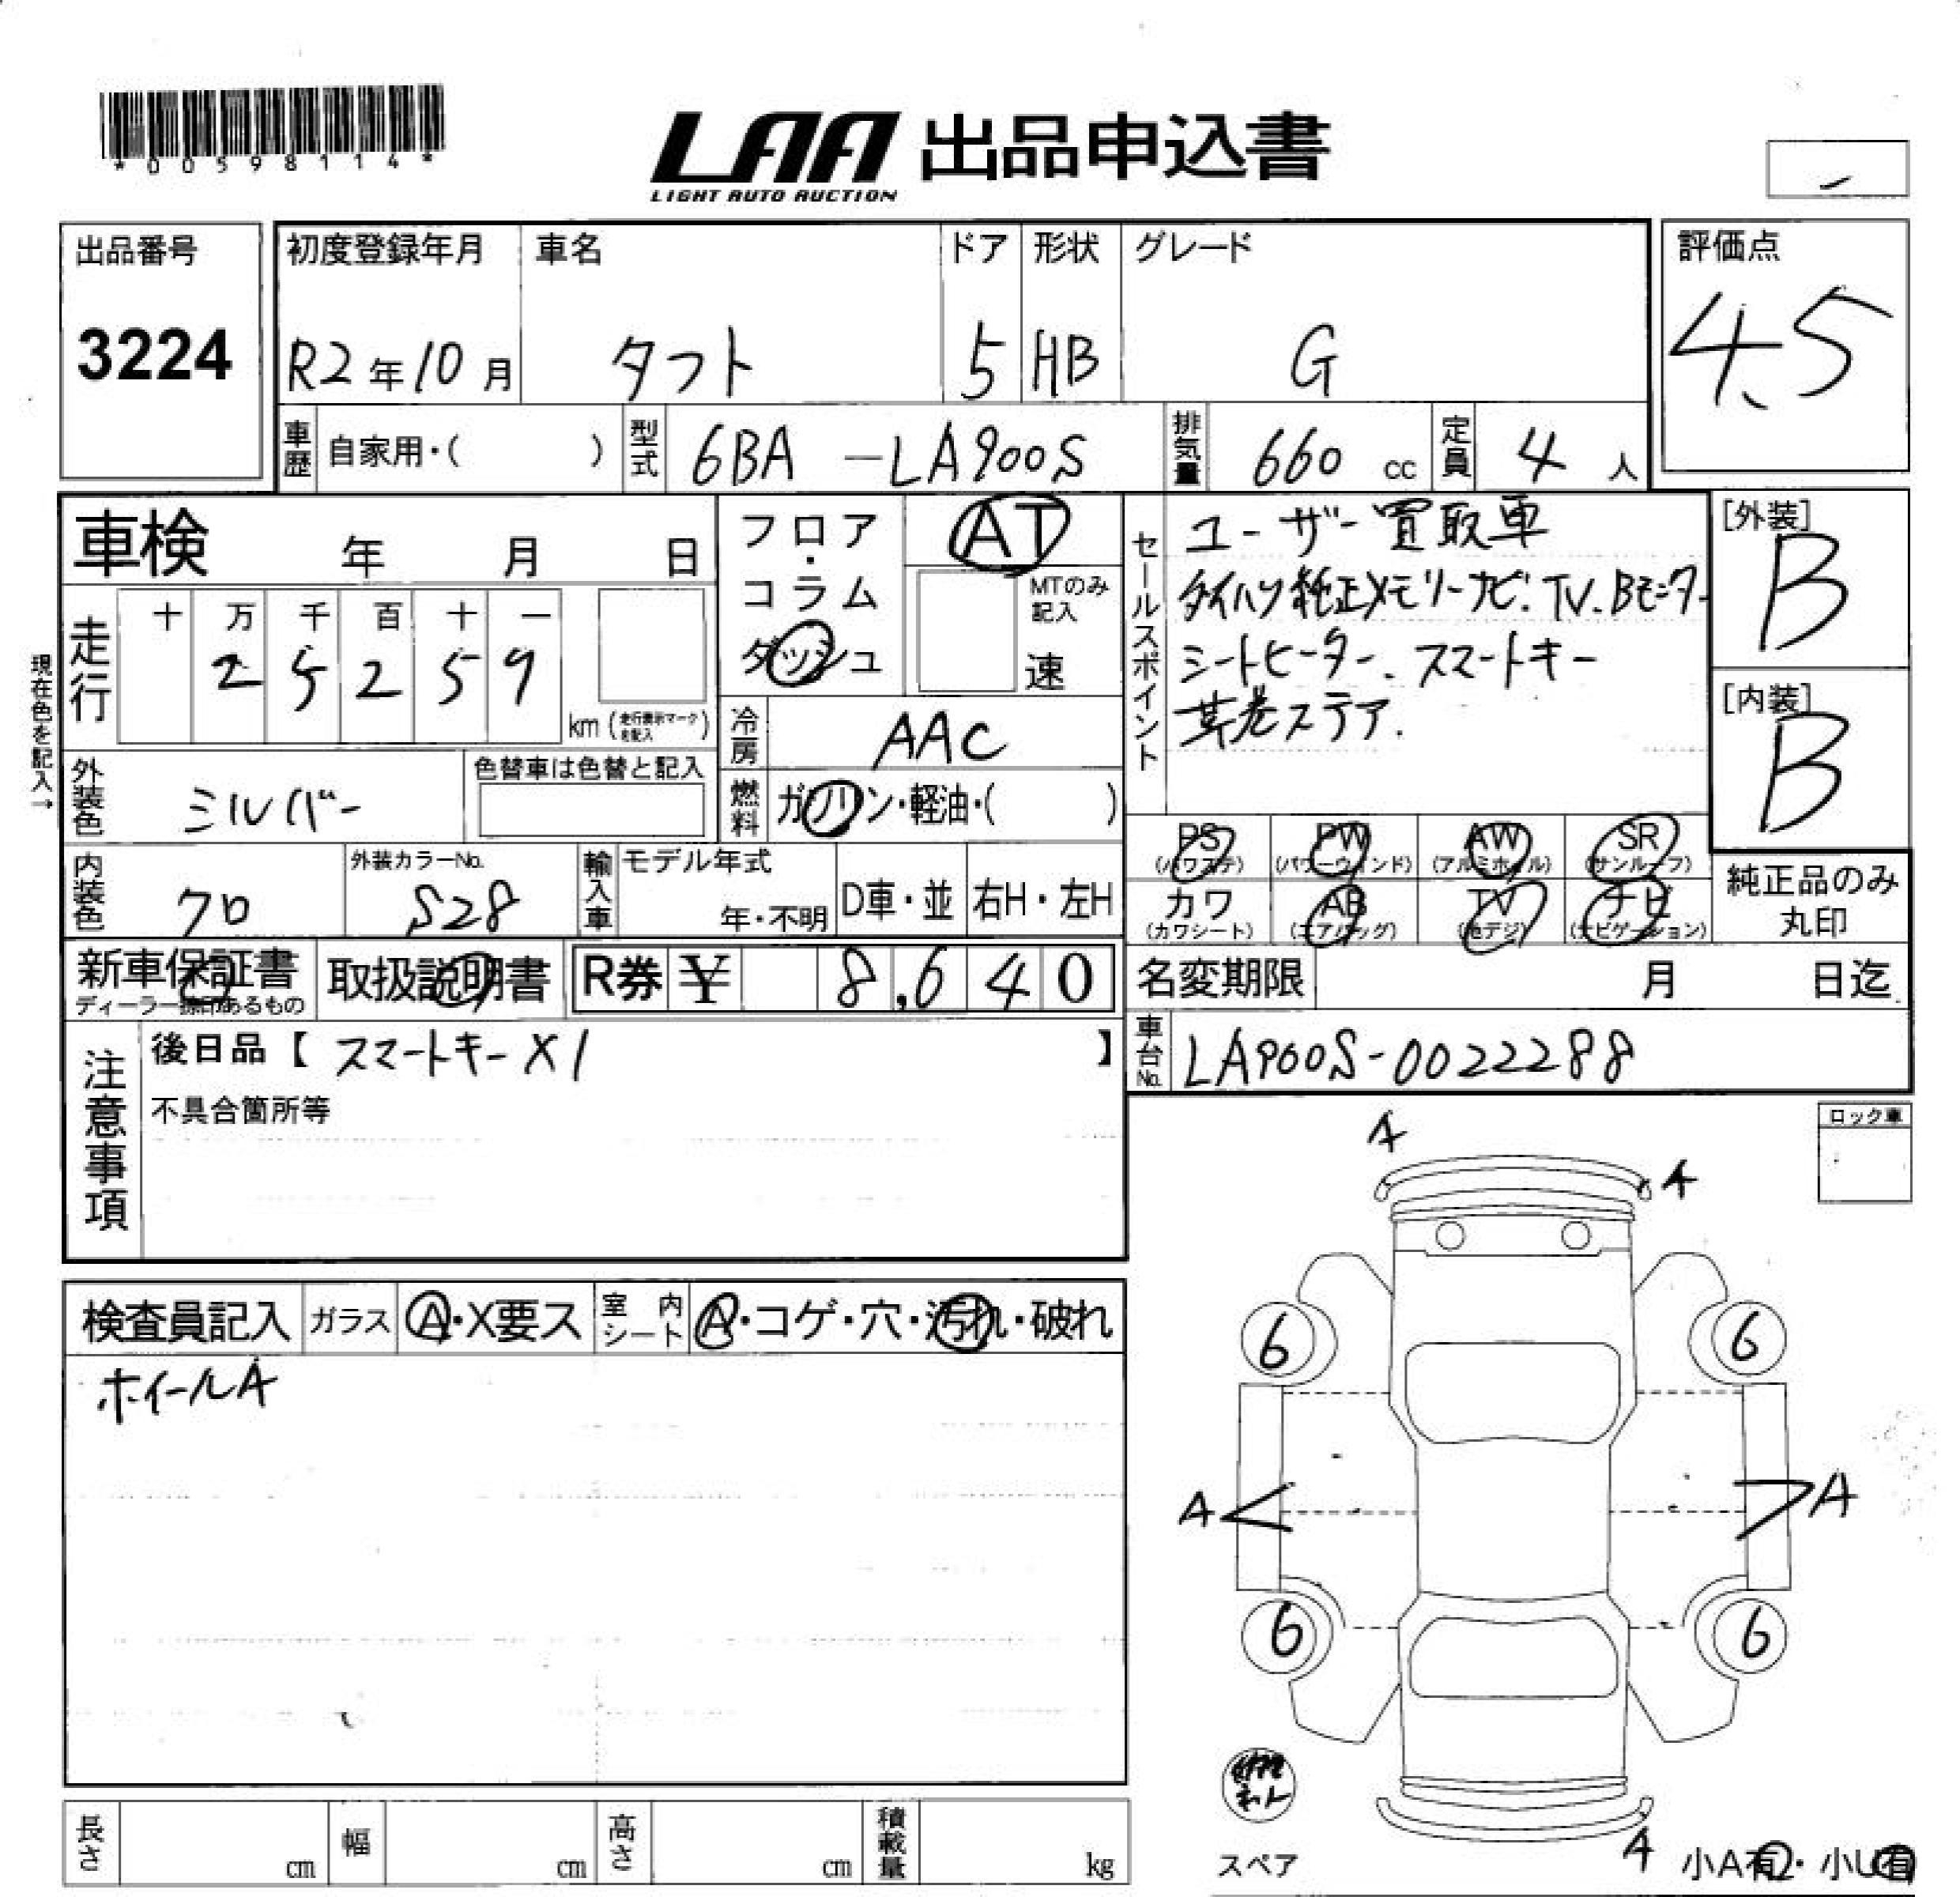 *00598114*
LAA 出品申込書
LIGHT AUTO AUCTION
出品番号
3224
初度登録年月
R2年10月
車名
タフト
ドア
5
形状
HB
グレード
G
評価点
4.5
車歴
自家用・( )
型式
6BA -LA900S
排気量
660 cc
定員
4 人
車検 年 月 日
現在色を記入→
走行
十 万 千 百 十 一
2 5 2 5 9
km (走行表示マークを記入)
フロア・コラム
ダッシュ
AT
MTのみ記入
速
冷房
AAC
燃料
ガソリン・軽油・( )
セールスポイント
ユーザー買取車
ダイハツ純正メモリーナビ.TV.Bモニター
シートヒーター.スマートキー
革巻ステア.
[外装]
B
[内装]
B
外装色
シルバー
色替車は色替と記入
内装色
クロ
外装カラーNo.
S28
輸入車
モデル年式
年・不明
D車・並
右H・左H
PS
(パワステ)
PW
(パワーウィンド)
AW
(アルミホイル)
SR
(サンルーフ)
カワ
(カワシート)
AB
(エアバッグ)
TV
(地デジ)
ナビ
(ナビゲーション)
純正品のみ
丸印
新車保証書
ディーラー捺印あるもの
取扱説明書
R券 ¥ 8,640
名変期限 月 日迄
車台No.
LA900S-0022288
注意事項
後日品【 スマートキー×1 】
不具合箇所等
ロック車
A
A
検査員記入
ガラス
A・X要ス
室内シート
A・コゲ・穴・汚れ・破れ
ホイールA
6
6
A
A
6
6
スペア
A
小A有・小U有
長さ cm
幅 cm
高さ cm
積載量 kg